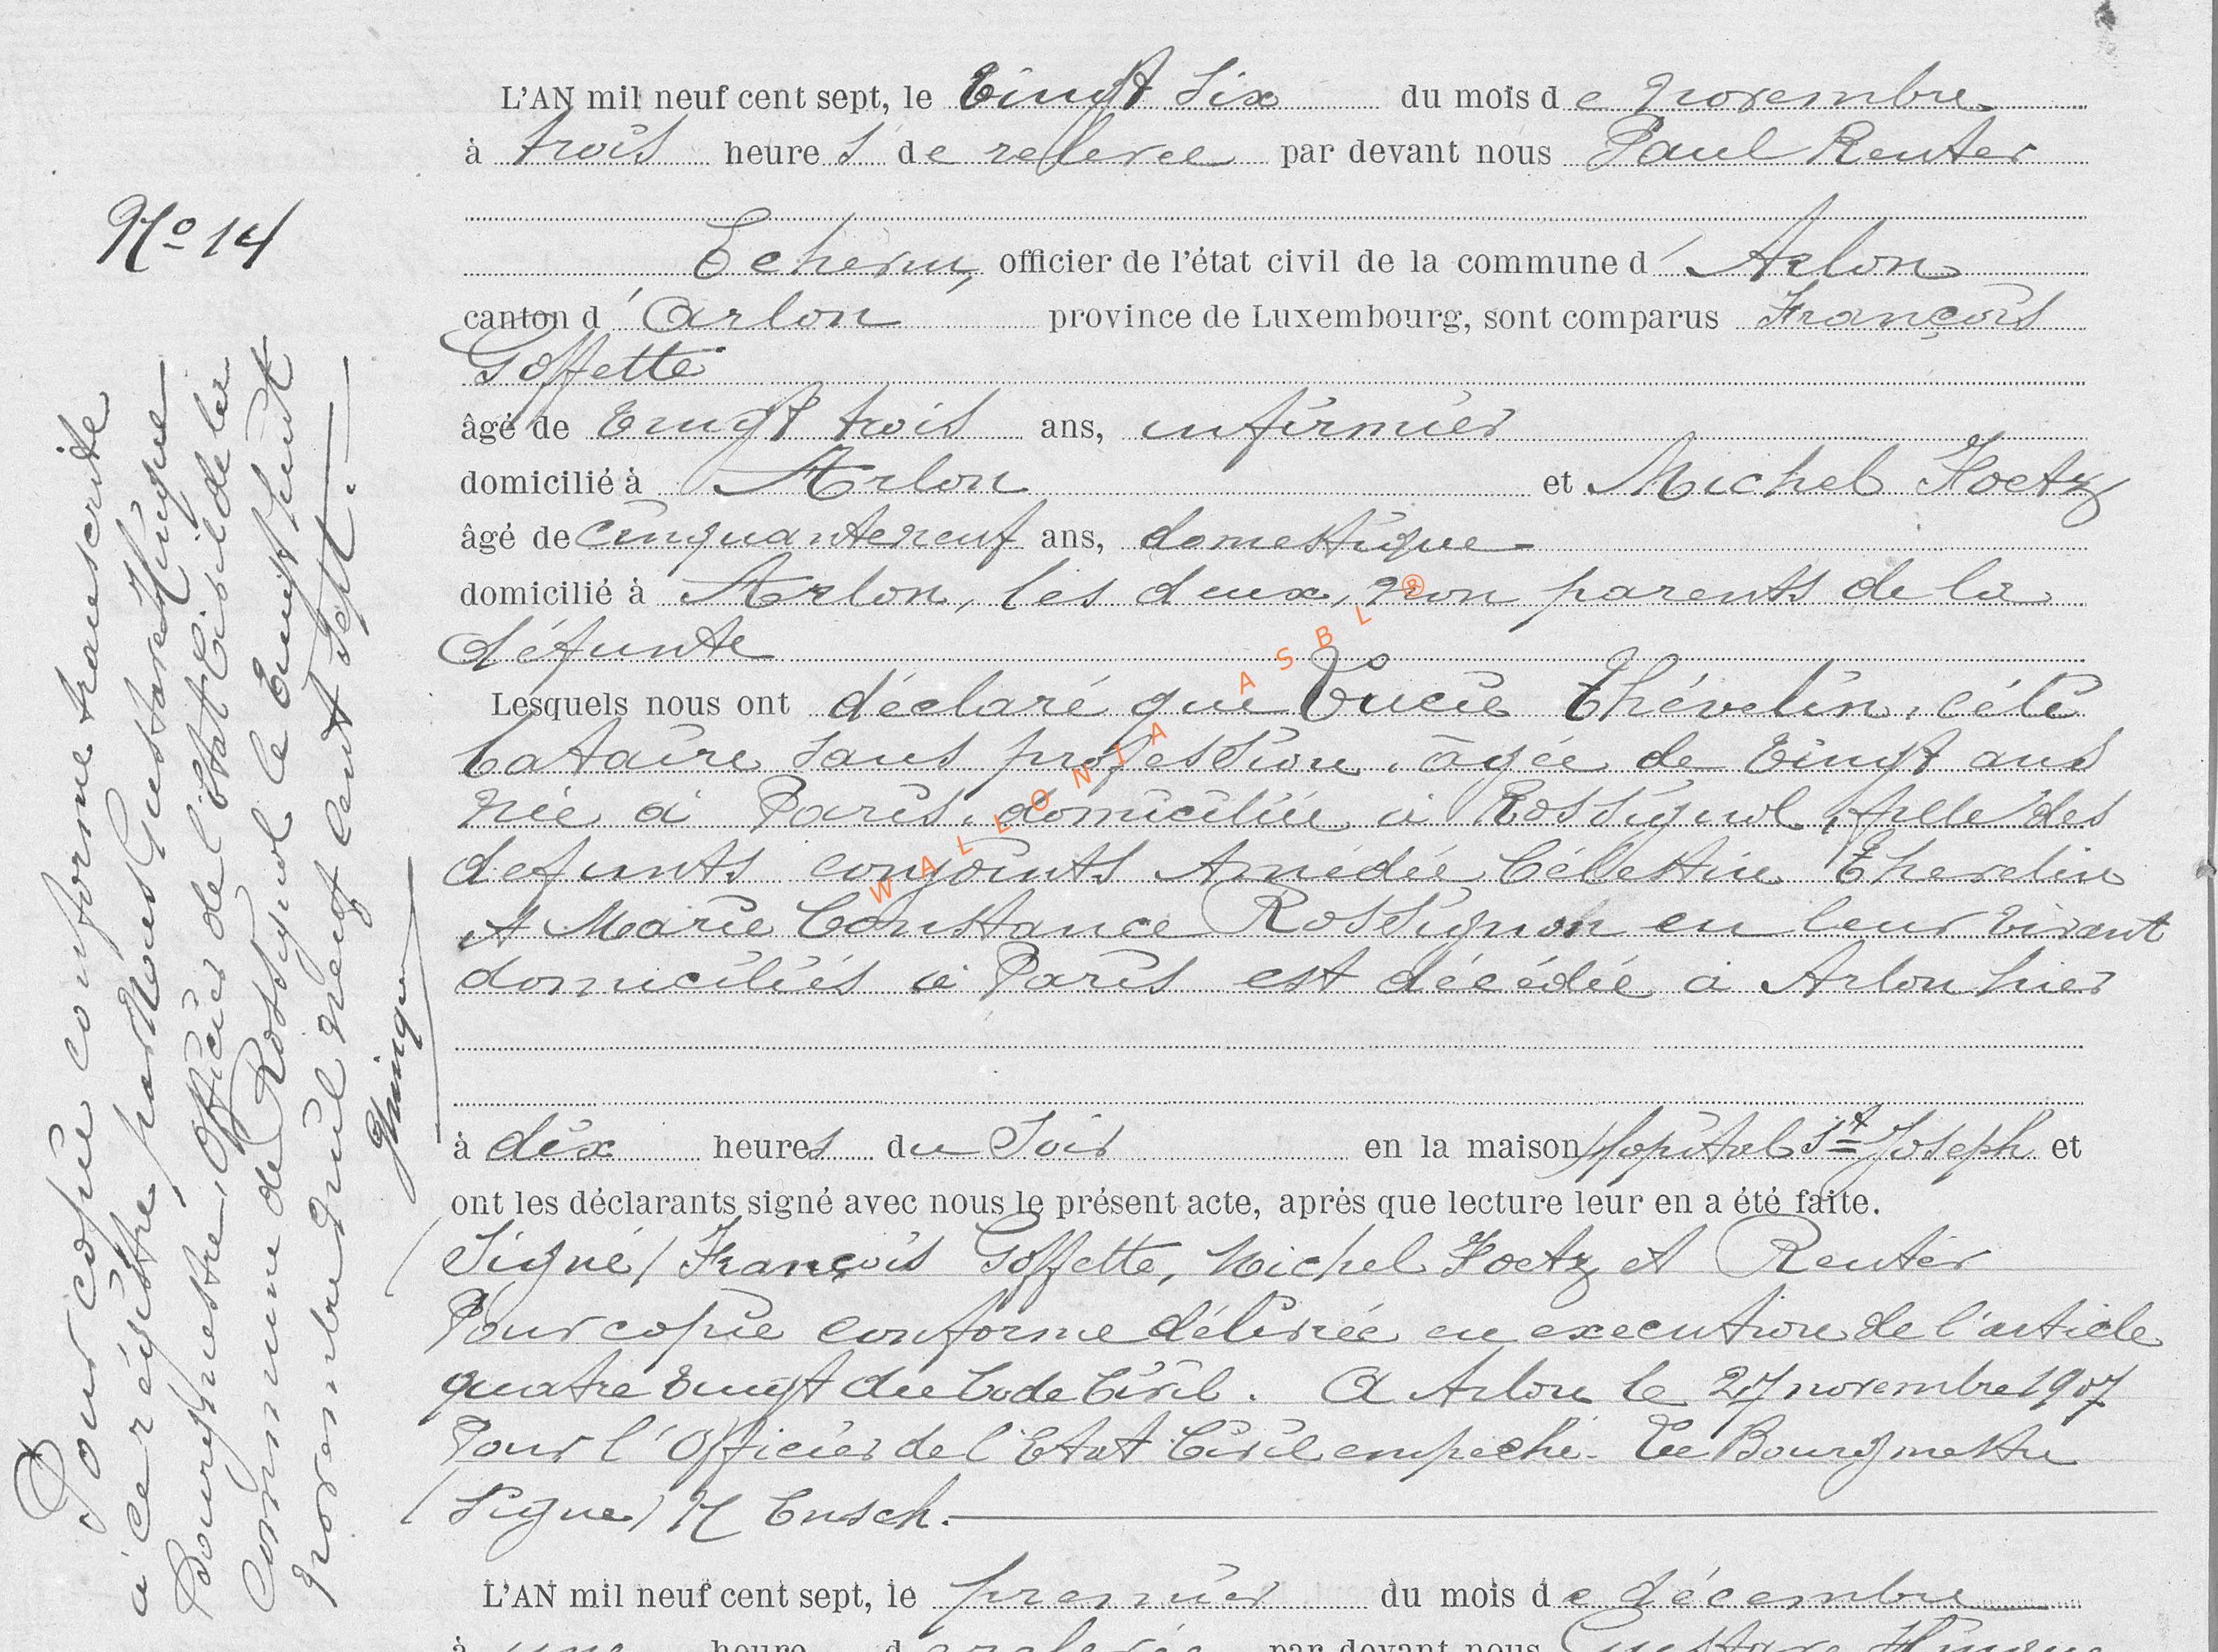 L'AN mil neuf cent sept, le Vingt Six du mois de novembre
à trois heures de relevée par devant nous Paul Reuter
No 14
Echevin, officier de l'état civil de la commune d' Arlon
canton d' Arlon province de Luxembourg, sont comparus François
Goffette
âgé de Vingt trois ans, infirmier
domicilié à Arlon et Michel
âgé de cinquante neuf ans, domestique
domicilié à Arlon, les deux, non parents de la
défunte
Lesquels nous ont déclaré que Lucie Thévelin, céli
bataire sans profession, âgée de Vingt ans
née à Paris, domiciliée à Rossignol, fille des
defunts conjoints Amédée Célestin Thevelin
et Marie Constance Rossignon en leur vivant
domiciliés à Paris est décédée à Arlon hier
à dix heures du Soir en la maison hopital St Joseph et
ont les déclarants signé avec nous le présent acte, après que lecture leur en a été faite.
(Signé) François Goffette, Michel et Reuter
Pour copie conforme délivrée en execution de l'article
quatre vingt du Code Civil. A Arlon le 27 novembre 1907
Pour l'Officier de l'Etat Civil empeché. Le Bourgmestre
(Signé) N Ensch.
Pour copie conforme transcrite
à ce régistre, par Nous Gustave Hinque
Bourgmestre, Officier de l'Etat Civil de la
Commune de Rossignol le Vingt huit
novembre mil neuf cent sept.
Hinque
WALLONIA ASBL ®
L'AN mil neuf cent sept, le premier du mois de décembre
à une heure de relevée par devant nous Gustave Hinque